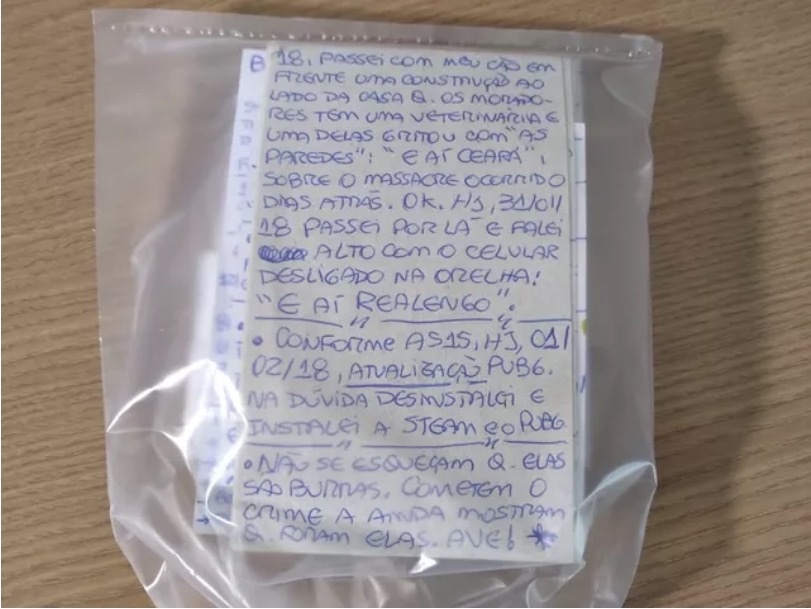 18, PASSEI COM MEU CÃO EM
FRENTE UMA CONSTRUÇÃO AO
LADO DA CASA Q. OS MORADO-
RES TEM UMA VETERINARIA E
UMA DELAS GRITOU COM "AS
PAREDES": "E AÍ CEARÁ",
SOBRE O MASSACRE OCORRIDO
DIAS ATRÁS. OK. HJ, 31/01/
18 PASSEI POR LÁ E FALEI
ALTO COM O CELULAR
DESLIGADO NA ORELHA:
"E AÍ REALENGO".
• CONFORME AS 15, HJ, 01/
02/18, ATUALIZAÇÃO PUBG.
NA DÚVIDA DESINSTALEI E
INSTALEI A STEAM E O PUBG.
• NÃO SE ESQUEÇAM Q. ELAS
SÃO BURRAS. COMETEM O
CRIME A AINDA MOSTRAM
Q. FORAM ELAS. AVE! *